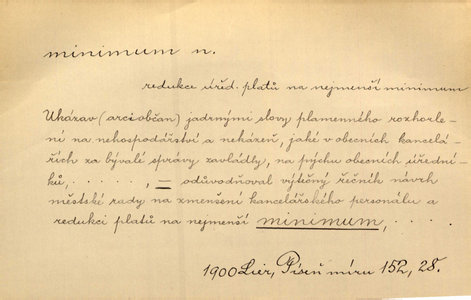 minimum n.
redukce úřed. platů na nejmenší minimum
Uhárav (arciobčan) jadrnými slovy plamenného rozhorle-
ní na nehospodářství a nekázeň, jaké v obecních kancelá-
řích za bývalé správy zavládly, na pýchu obecních úřední-
ků, . . . . . , — odůvodňoval výtečný řečník návrh
městské rady na zmenšení kancelářského personálu a
redukci platů na nejmenší minimum, . . . .
1900 Lier, Píseň míru 152, 28.